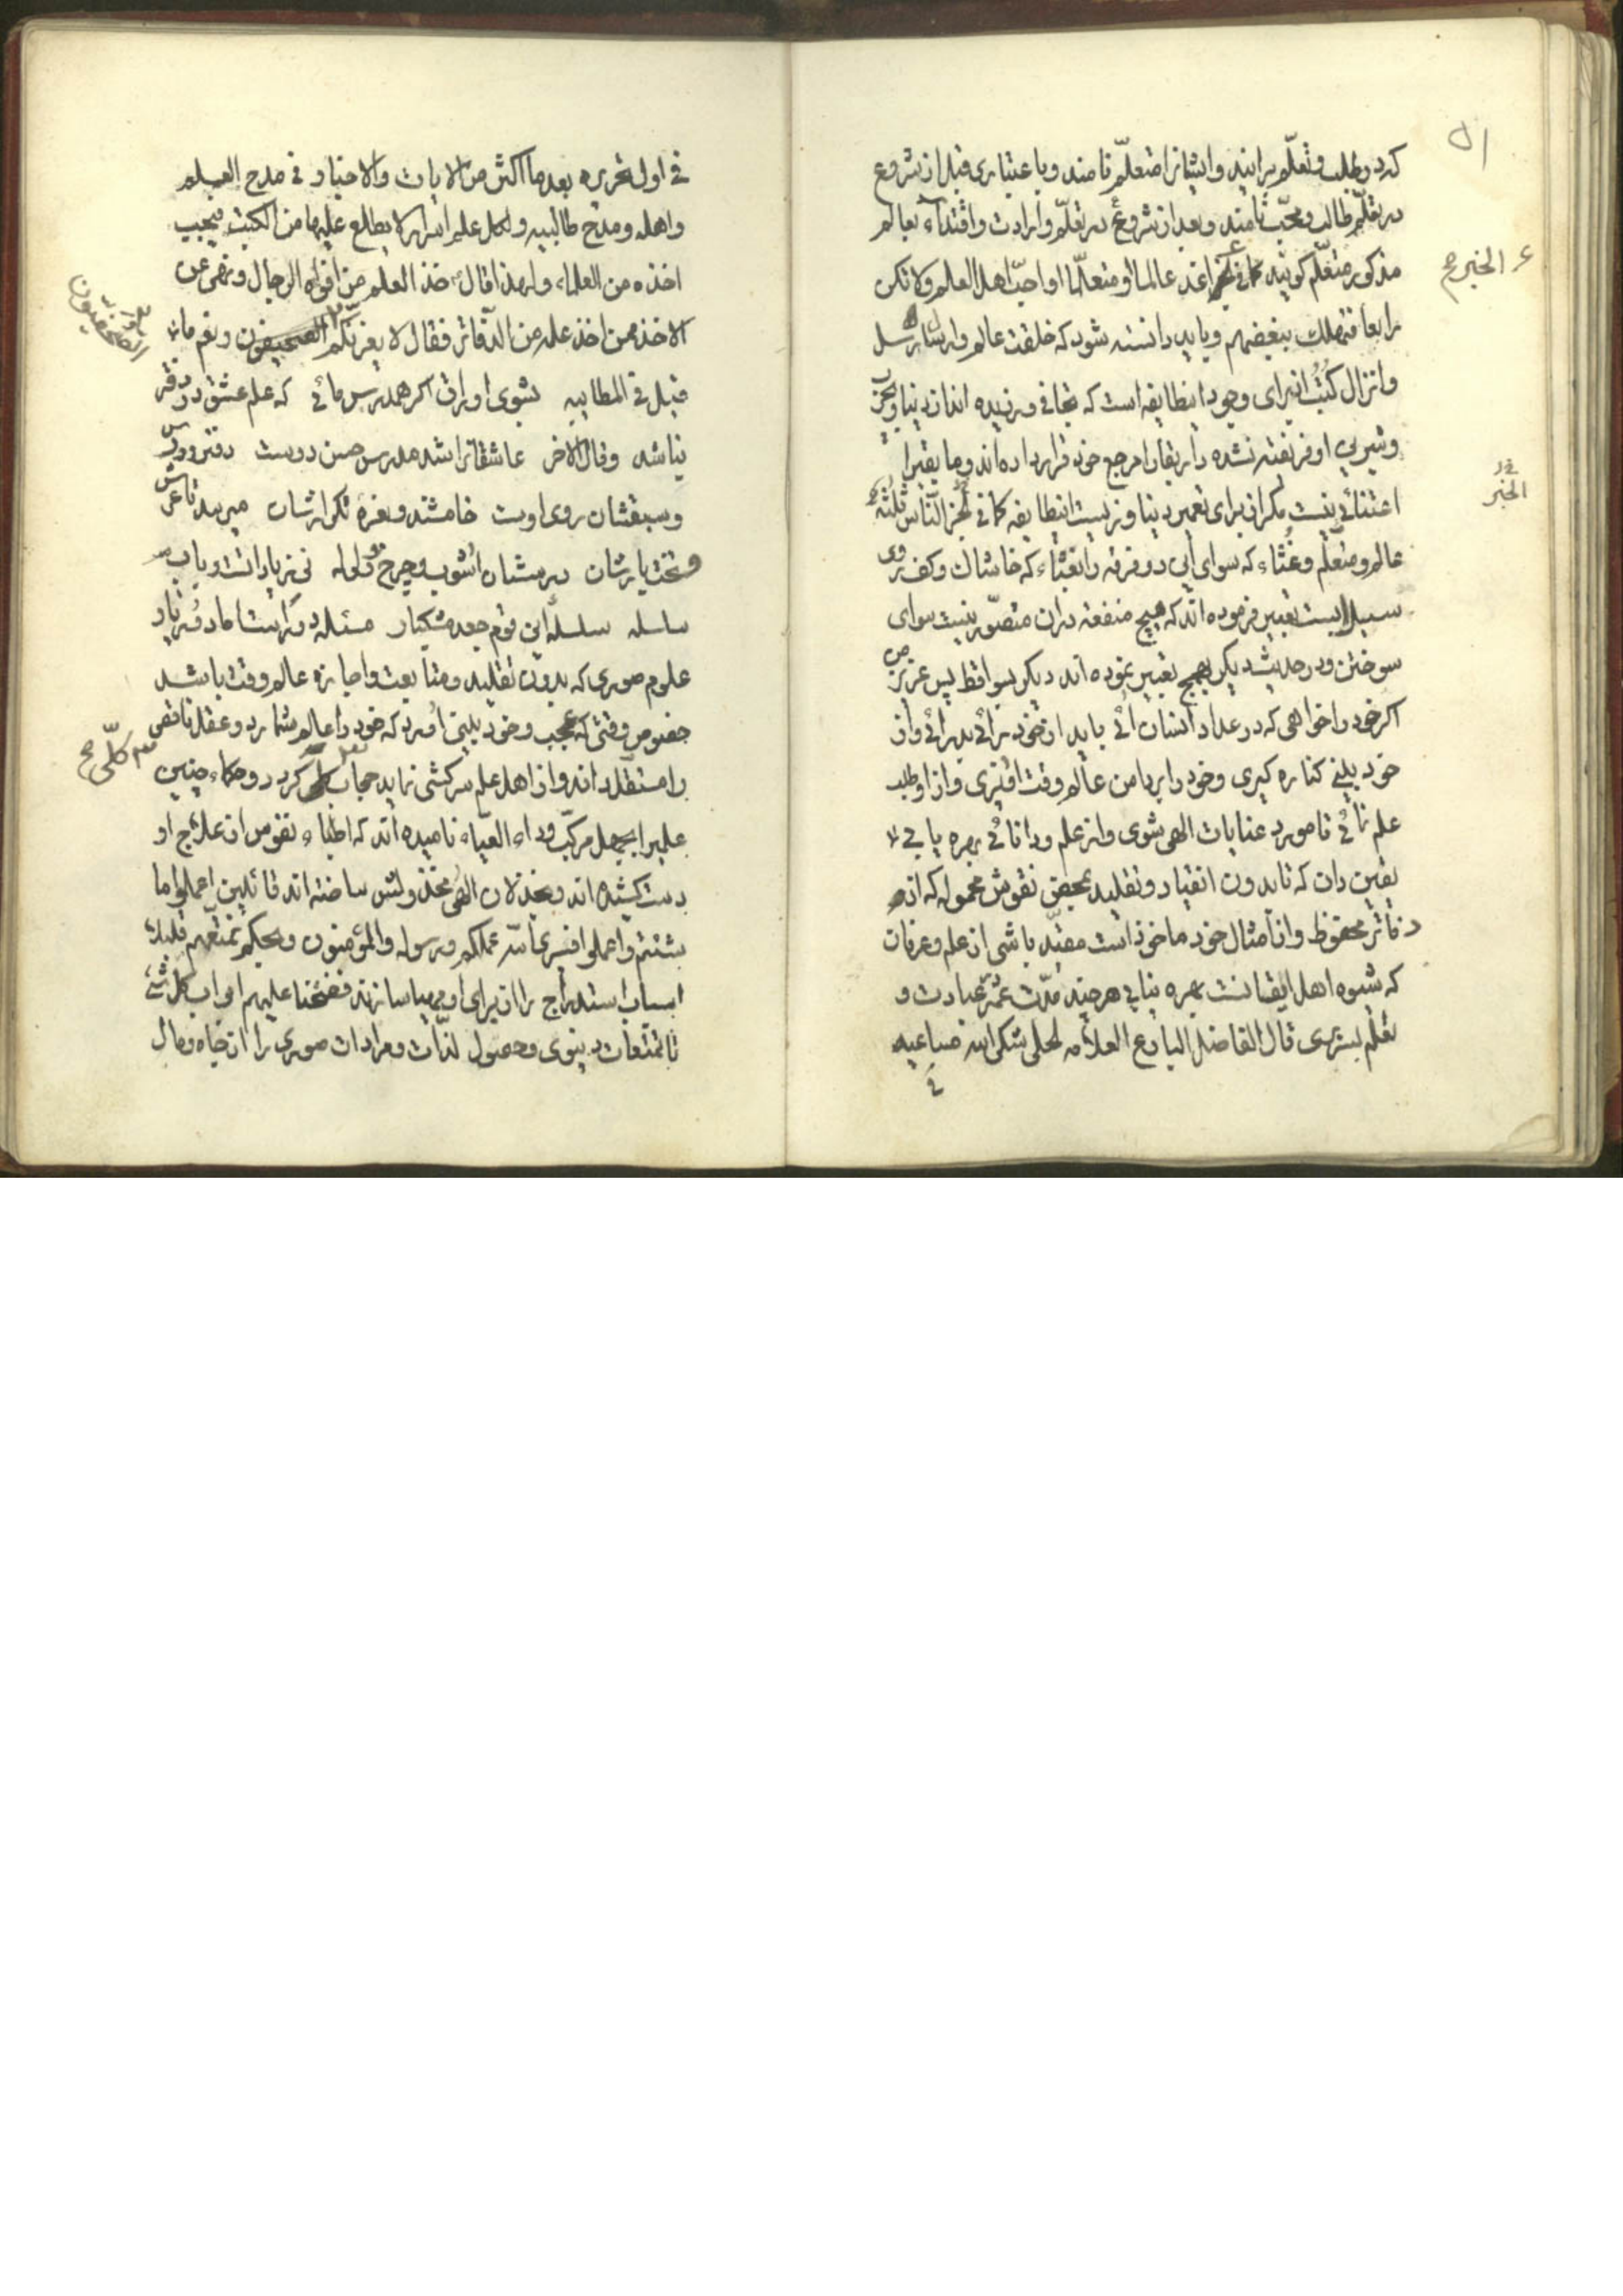 کرد وطلب وتعلّم برایند وایشانرا متعلّم نامند وباعتباری قبل از شروع
در تعلّم طالب ومحبّ نامند وبعد از شروع در تعلّم وارادت واقتداء بعالم
مذکور متعلّم کویند کما فی اغد عالما او متعلّما او احبّ اهل العلم ولا تکن
رابعا فتهلك ببغضهم وباید دانسته شود که خلقت عالم وارسال رسل
وانزال کُتُب از برای وجود اینطایفه است که تجافی ورزیده اند از دنیا و
وشیرینی او فریفته نشده دار بقا را مرجع خود قرار داده اند وما بقیرا
اعتنائی نیست مکر از برای تعمیر دنیا وزیست اینطایفه کما فی الخبر النّاس ثلثة
عالم ومتعلّم وغثاء که سوای این دو فرقه را بغثاء که خاشاك وکف روی
سیل است تعبیر فرموده اند که هیچ منفعة در ان متصوّر نیست سوای
سوختن ودر حدیث دیکر بهمج تعبیر نموده اند دیکر بسواقط پس عزیز من
اکر خود را خواهی که در عداد انسان ائی باید از خود رائی بدر ائی واز
خود بینی کناره کیری وخود را بدامن عالم وقت اندازی واز او طلب
علم نمائی تا مورد عنایات الهی شوی واز علم ودانائی بهره یابی
یقین دان که تا بدون انقیاد وتقلید بمحض نقوش محموله که از
دفاتر محفوظ واز امثال خود ماخوذ است مقیّد باشی از علم وعرفان
که شیوه اهل ایقانست بهره نیابی هر چند مدّت عمر عبادت و
تعلّم بسر بری قال الفاضل البارع العلامه لحلی شکر الله مساعیه
فی
الخبر صح
الخبر
فی اول تحریره بعد ما اکثر من الایات والاخبار فی مدح العلم
واهله ومدح طالبیه ولکل علم اسرار لا یطلع علیها من الکتب فیجب
اخذه من العلماء ولهذا قال خذ العلم من افواه الرجال ونهی عن
الاخذ ممن اخذ علمه من الدفاتر فقال لا یغرنّکم الصحیفون ونعم ما
قیل فی المطایبه بشوی اوراق اکر همدرس مائی که علم عشق در دفتر
نباشد وقال الاخر عاشقانرا شد مدرس حسن دوست دفتر ودرس
وسبقشان روی اوست خامشند ونعره تکرارشان میرسد تا عرش
وتخت یارشان درسشان اشوب وچرخ و ولوله نی زیاداتست وباب
سلسله سلسله این قوم جعد مشکبار مسئله دورست اما دور یار
علوم صوری که بدون تقلید ومتابعت واجازه عالم وقت باشد
خصوص وقتی که عجب وخود بینی اورد که خود را عالم شمارد وعقل ناقص
را مستقل داند واز اهل علم سرکشی نماید حجاب کردد وحکماء چنین
علمیرا بجهل مرکّب وداء العیاء نامیده اند که اطبّاء نفوس از علاج او
دست کشیده اند وبخذلان الهی مخذولش ساخته اند قائلین اعملوا ما
شئتم واعملوا فسیری الله عملکم ورسوله والمؤمنون وبحکم نمتّعهم قلیلا
اسباب استدراج را از برای او مهیا سازند ففتحنا علیهم ابواب کل شئ
تا تمتعات دنیوی وحصول لذّات ومرادات صوری را از جاه ومال
الصحفیون
کلّی صح